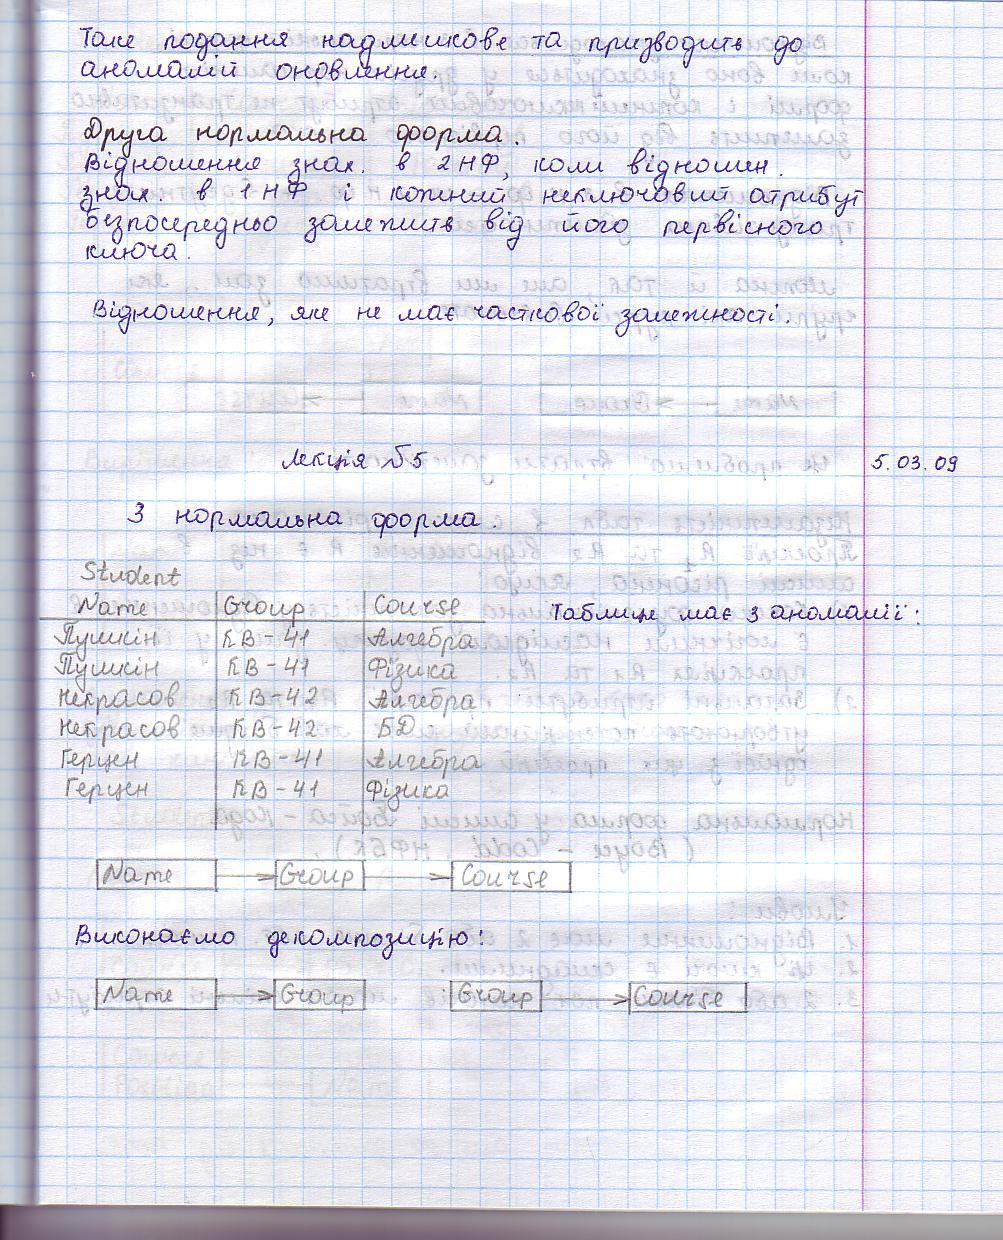 Таке подання надлишкове та призводить до
аномалій оновлення.
Друга нормальна форма.
Відношення знах. в 2НФ, коли відношен.
знах. в 1НФ і кожний неключовий атрибут
безпосередньо залежить від його первісного
ключа.
Відношення, яке не має часткової залежності.
Лекція №5 5.03.09
3 нормальна форма.
Student
Name Group Course Таблиця має 3 аномалії:
Пушкін КВ-41 Алгебра
Пушкін КВ-41 Фізика
Некрасов КВ-42 Алгебра
Некрасов КВ-42 БД
Герцен КВ-41 Алгебра
Герцен КВ-41 Фізика
Name Group Course
Виконаємо декомпозицію:
Name Group Group Course